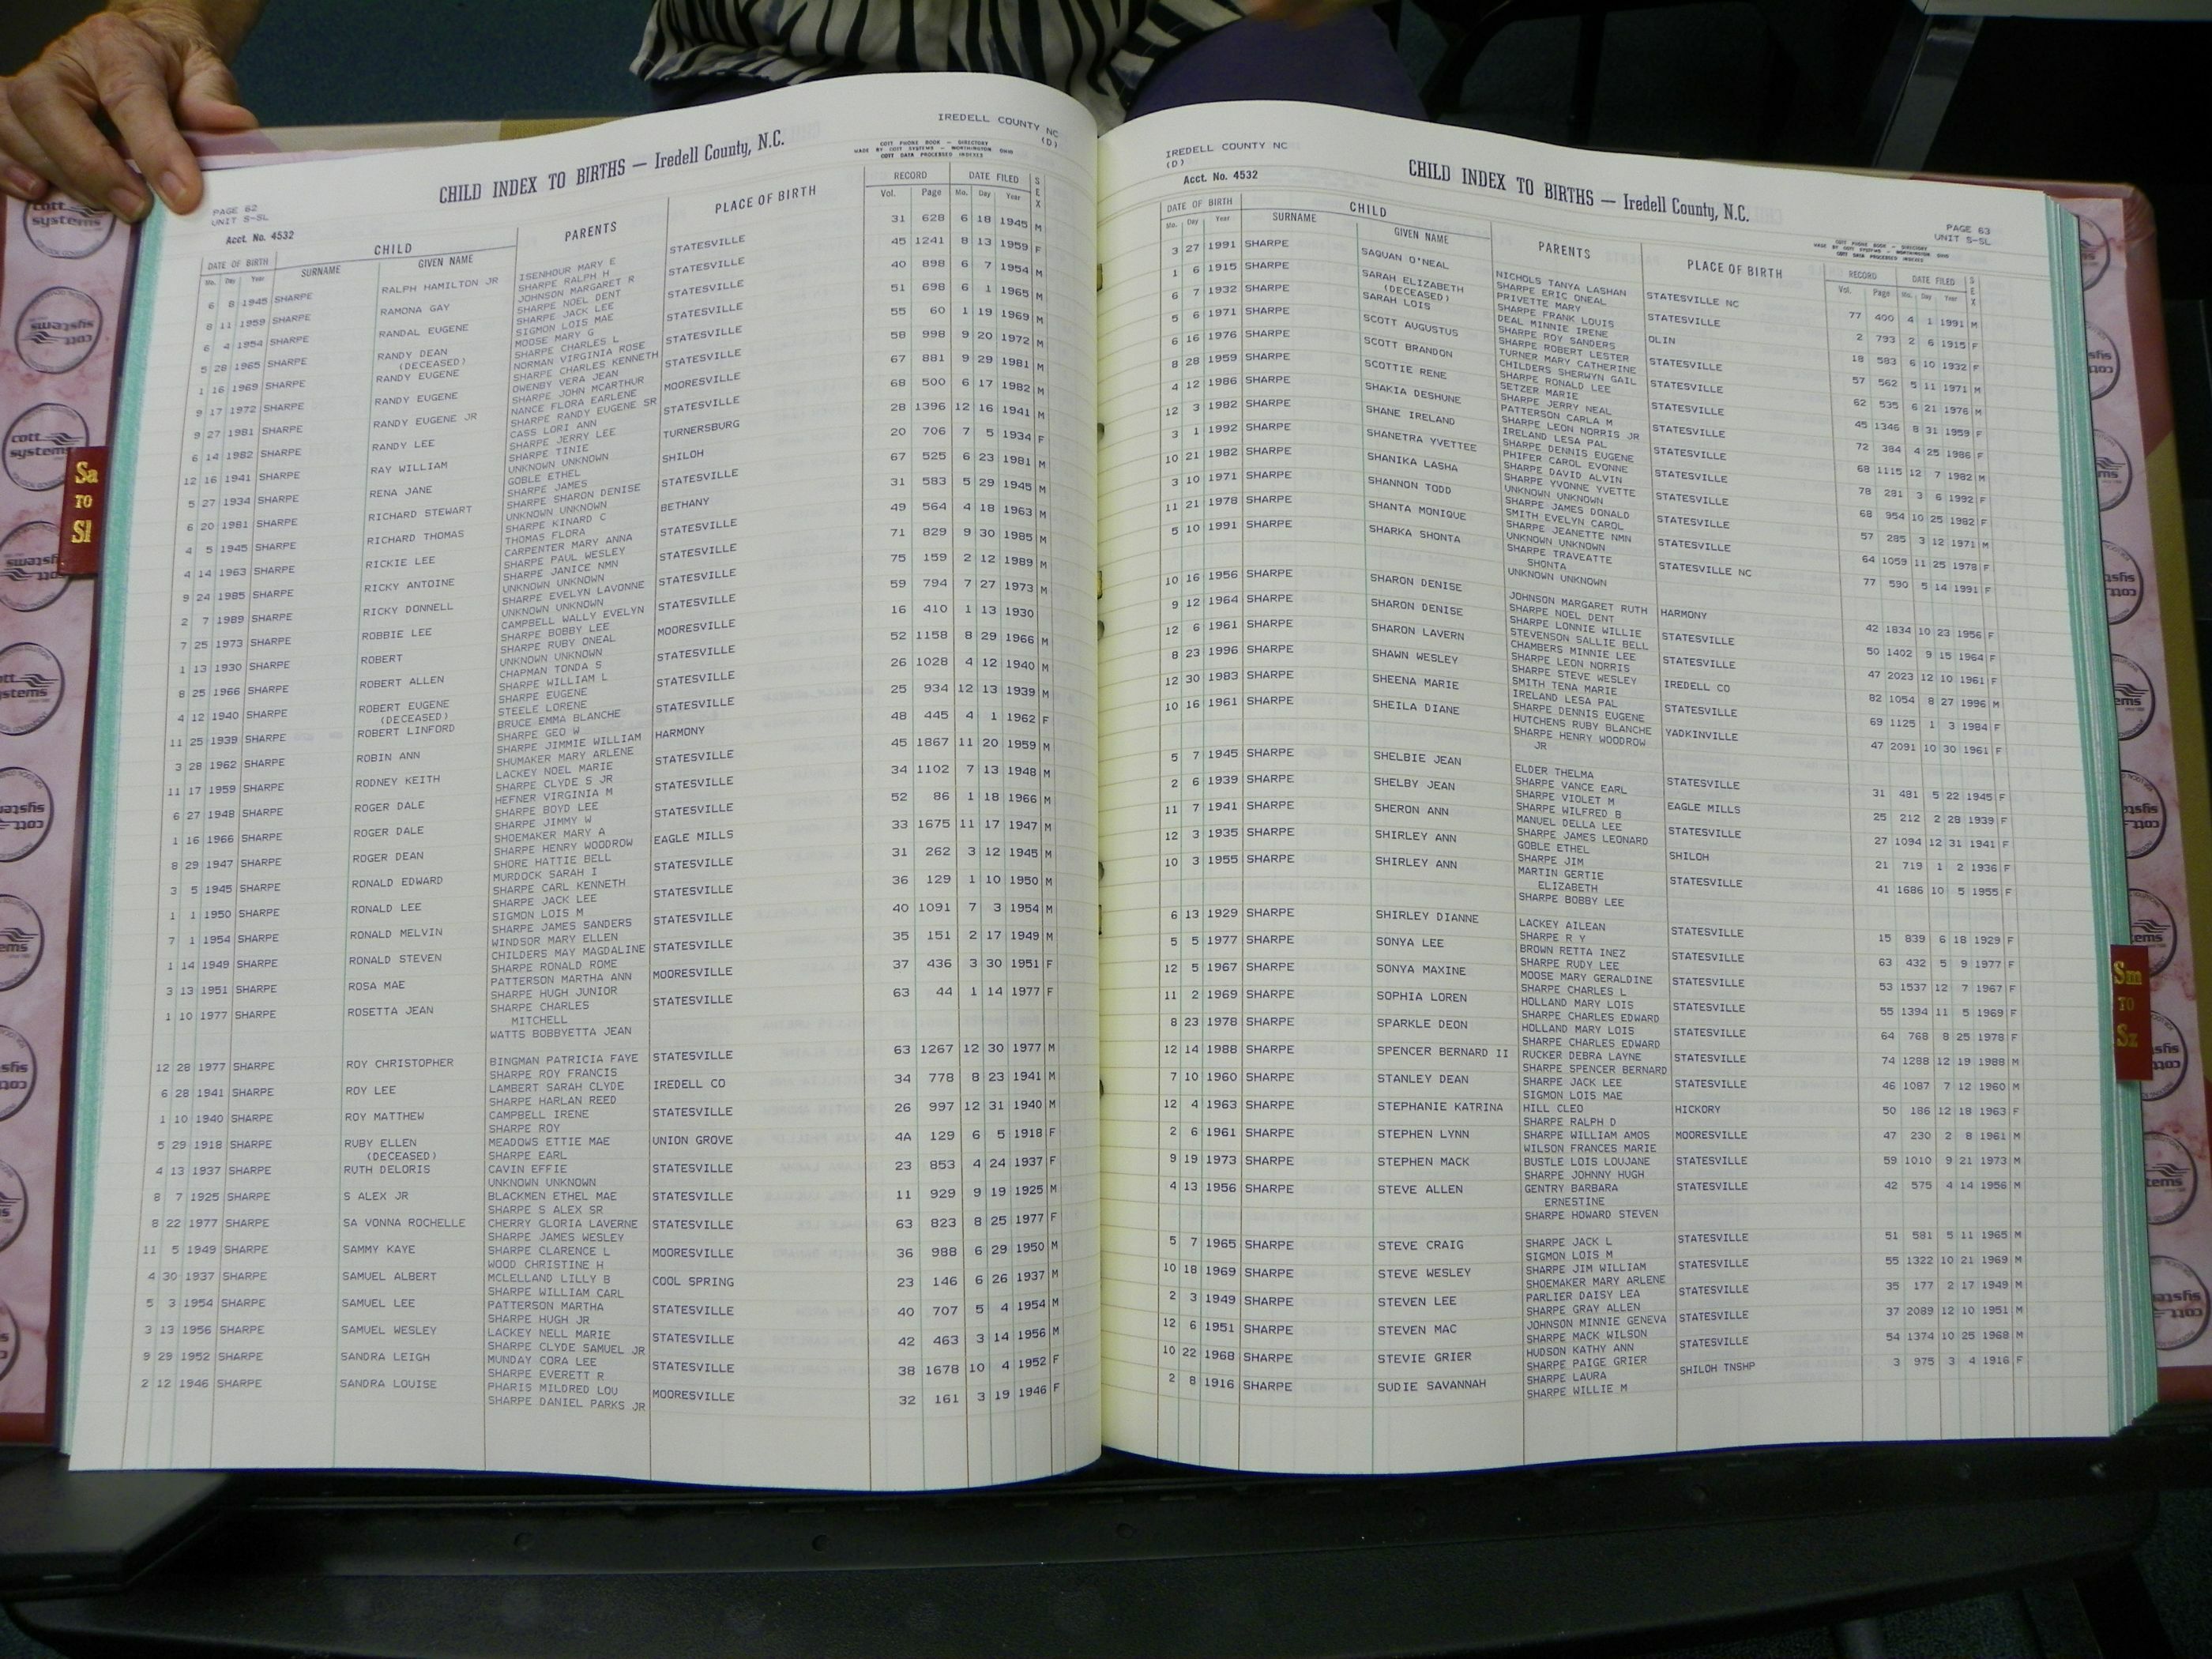 IREDELL COUNTY NC
(D)
COTT PHONE BOOK — DIRECTORY
MADE BY COTT SYSTEMS — WORTHINGTON OHIO
COTT DATA PROCESSED INDEXES
CHILD INDEX TO BIRTHS — Iredell County, N.C.
PAGE 62
UNIT S-SL
Acct. No. 4532
DATE OF BIRTH CHILD PARENTS PLACE OF BIRTH RECORD DATE FILED SEX
Mo. Day Year SURNAME GIVEN NAME Vol. Page Mo. Day Year
6 8 1945 SHARPE RALPH HAMILTON JR ISENHOUR MARY E STATESVILLE 31 628 6 18 1945 M
SHARPE RALPH H
8 11 1959 SHARPE RAMONA GAY JOHNSON MARGARET R STATESVILLE 45 1241 8 13 1959 F
SHARPE NOEL DENT
6 4 1954 SHARPE RANDAL EUGENE SHARPE JACK LEE STATESVILLE 40 898 6 7 1954 M
SIGMON LOIS MAE
5 28 1965 SHARPE RANDY DEAN MOOSE MARY G STATESVILLE 51 698 6 1 1965 M
(DECEASED) SHARPE CHARLES L
1 16 1969 SHARPE RANDY EUGENE NORMAN VIRGINIA ROSE STATESVILLE 55 60 1 19 1969 M
SHARPE CHARLES KENNETH
9 17 1972 SHARPE RANDY EUGENE OWENBY VERA JEAN STATESVILLE 58 998 9 20 1972 M
SHARPE JOHN MCARTHUR
9 27 1981 SHARPE RANDY EUGENE JR NANCE FLORA EARLENE MOORESVILLE 67 881 9 29 1981 M
SHARPE RANDY EUGENE SR
6 14 1982 SHARPE RANDY LEE CASS LORI ANN STATESVILLE 68 500 6 17 1982 M
SHARPE JERRY LEE
12 16 1941 SHARPE RAY WILLIAM SHARPE TINIE TURNERSBURG 28 1396 12 16 1941 M
UNKNOWN UNKNOWN
5 27 1934 SHARPE RENA JANE GOBLE ETHEL SHILOH 20 706 7 5 1934 F
SHARPE JAMES
6 20 1981 SHARPE RICHARD STEWART SHARPE SHARON DENISE STATESVILLE 67 525 6 23 1981 M
UNKNOWN UNKNOWN
4 5 1945 SHARPE RICHARD THOMAS SHARPE KINARD C BETHANY 31 583 5 29 1945 M
THOMAS FLORA
4 14 1963 SHARPE RICKIE LEE CARPENTER MARY ANNA STATESVILLE 49 564 4 18 1963 M
SHARPE PAUL WESLEY
9 24 1985 SHARPE RICKY ANTOINE SHARPE JANICE NMN STATESVILLE 71 829 9 30 1985 M
UNKNOWN UNKNOWN
2 7 1989 SHARPE RICKY DONNELL SHARPE EVELYN LAVONNE STATESVILLE 75 159 2 12 1989 M
UNKNOWN UNKNOWN
7 25 1973 SHARPE ROBBIE LEE CAMPBELL WALLY EVELYN STATESVILLE 59 794 7 27 1973 M
SHARPE BOBBY LEE
1 13 1930 SHARPE ROBERT SHARPE RUBY ONEAL MOORESVILLE 16 410 1 13 1930
UNKNOWN UNKNOWN
8 25 1966 SHARPE ROBERT ALLEN CHAPMAN TONDA S STATESVILLE 52 1158 8 29 1966 M
SHARPE WILLIAM L
4 12 1940 SHARPE ROBERT EUGENE SHARPE EUGENE STATESVILLE 26 1028 4 12 1940 M
(DECEASED) STEELE LORENE
11 25 1939 SHARPE ROBERT LINFORD BRUCE EMMA BLANCHE STATESVILLE 25 934 12 13 1939 M
SHARPE GEO W
3 28 1962 SHARPE ROBIN ANN SHARPE JIMMIE WILLIAM HARMONY 48 445 4 1 1962 F
SHUMAKER MARY ARLENE
11 17 1959 SHARPE RODNEY KEITH LACKEY NOEL MARIE STATESVILLE 45 1867 11 20 1959 M
SHARPE CLYDE S JR
6 27 1948 SHARPE ROGER DALE HEFNER VIRGINIA M STATESVILLE 34 1102 7 13 1948 M
SHARPE BOYD LEE
1 16 1966 SHARPE ROGER DALE SHARPE JIMMY W STATESVILLE 52 86 1 18 1966 M
SHOEMAKER MARY A
8 29 1947 SHARPE ROGER DEAN SHARPE HENRY WOODROW EAGLE MILLS 33 1675 11 17 1947 M
SHORE HATTIE BELL
3 5 1945 SHARPE RONALD EDWARD MURDOCK SARAH I STATESVILLE 31 262 3 12 1945 M
SHARPE CARL KENNETH
1 1 1950 SHARPE RONALD LEE SHARPE JACK LEE STATESVILLE 36 129 1 10 1950 M
SIGMON LOIS M
7 1 1954 SHARPE RONALD MELVIN SHARPE JAMES SANDERS STATESVILLE 40 1091 7 3 1954 M
WINDSOR MARY ELLEN
1 14 1949 SHARPE RONALD STEVEN CHILDERS MAY MAGDALINE STATESVILLE 35 151 2 17 1949 M
SHARPE RONALD ROME
3 13 1951 SHARPE ROSA MAE PATTERSON MARTHA ANN MOORESVILLE 37 436 3 30 1951 F
SHARPE HUGH JUNIOR
1 10 1977 SHARPE ROSETTA JEAN SHARPE CHARLES STATESVILLE 63 44 1 14 1977 F
MITCHELL
WATTS BOBBYETTA JEAN
12 28 1977 SHARPE ROY CHRISTOPHER BINGMAN PATRICIA FAYE STATESVILLE 63 1267 12 30 1977 M
SHARPE ROY FRANCIS
6 28 1941 SHARPE ROY LEE LAMBERT SARAH CLYDE IREDELL CO 34 778 8 23 1941 M
SHARPE HARLAN REED
1 10 1940 SHARPE ROY MATTHEW CAMPBELL IRENE STATESVILLE 26 997 12 31 1940 M
SHARPE ROY
5 29 1918 SHARPE RUBY ELLEN MEADOWS ETTIE MAE UNION GROVE 4A 129 6 5 1918 F
(DECEASED) SHARPE EARL
4 13 1937 SHARPE RUTH DELORIS CAVIN EFFIE STATESVILLE 23 853 4 24 1937 F
UNKNOWN UNKNOWN
8 7 1925 SHARPE S ALEX JR BLACKMEN ETHEL MAE STATESVILLE 11 929 9 19 1925 M
SHARPE S ALEX SR
8 22 1977 SHARPE SA VONNA ROCHELLE CHERRY GLORIA LAVERNE STATESVILLE 63 823 8 25 1977 F
SHARPE JAMES WESLEY
11 5 1949 SHARPE SAMMY KAYE SHARPE CLARENCE L MOORESVILLE 36 988 6 29 1950 M
WOOD CHRISTINE H
4 30 1937 SHARPE SAMUEL ALBERT MCLELLAND LILLY B COOL SPRING 23 146 6 26 1937 M
SHARPE WILLIAM CARL
5 3 1954 SHARPE SAMUEL LEE PATTERSON MARTHA STATESVILLE 40 707 5 4 1954 M
SHARPE HUGH JR
3 13 1956 SHARPE SAMUEL WESLEY LACKEY NELL MARIE STATESVILLE 42 463 3 14 1956 M
SHARPE CLYDE SAMUEL JR
9 29 1952 SHARPE SANDRA LEIGH MUNDAY CORA LEE STATESVILLE 38 1678 10 4 1952 F
SHARPE EVERETT R
2 12 1946 SHARPE SANDRA LOUISE PHARIS MILDRED LOU MOORESVILLE 32 161 3 19 1946 F
SHARPE DANIEL PARKS JR
IREDELL COUNTY NC
(D)
Acct. No. 4532
CHILD INDEX TO BIRTHS — Iredell County, N.C.
PAGE 63
UNIT S-SL
COTT PHONE BOOK — DIRECTORY
MADE BY COTT SYSTEMS — WORTHINGTON OHIO
COTT DATA PROCESSED INDEXES
DATE OF BIRTH CHILD PARENTS PLACE OF BIRTH RECORD DATE FILED SEX
Mo. Day Year SURNAME GIVEN NAME Vol. Page Mo. Day Year
3 27 1991 SHARPE SAQUAN O'NEAL NICHOLS TANYA LASHAN STATESVILLE NC 77 400 4 1 1991 M
SHARPE ERIC ONEAL
1 6 1915 SHARPE SARAH ELIZABETH PRIVETTE MARY STATESVILLE 2 793 2 6 1915 F
(DECEASED) SHARPE FRANK LOUIS
6 7 1932 SHARPE SARAH LOIS DEAL MINNIE IRENE OLIN 18 583 6 10 1932 F
SHARPE ROY SANDERS
5 6 1971 SHARPE SCOTT AUGUSTUS SHARPE ROBERT LESTER STATESVILLE 57 562 5 11 1971 M
TURNER MARY CATHERINE
6 16 1976 SHARPE SCOTT BRANDON CHILDERS SHERWYN GAIL STATESVILLE 62 535 6 21 1976 M
SHARPE RONALD LEE
8 28 1959 SHARPE SCOTTIE RENE SETZER MARIE STATESVILLE 45 1346 8 31 1959 F
SHARPE JERRY NEAL
4 12 1986 SHARPE SHAKIA DESHUNE PATTERSON CARLA M STATESVILLE 72 384 4 25 1986 F
SHARPE LEON NORRIS JR
12 3 1982 SHARPE SHANE IRELAND IRELAND LESA PAL STATESVILLE 68 1115 12 7 1982 M
SHARPE DENNIS EUGENE
3 1 1992 SHARPE SHANETRA YVETTEE PHIFER CAROL EVONNE STATESVILLE 78 281 3 6 1992 F
SHARPE DAVID ALVIN
10 21 1982 SHARPE SHANIKA LASHA SHARPE YVONNE YVETTE STATESVILLE 68 954 10 25 1982 F
UNKNOWN UNKNOWN
3 10 1971 SHARPE SHANNON TODD SHARPE JAMES DONALD STATESVILLE 57 285 3 12 1971 M
SMITH EVELYN CAROL
11 21 1978 SHARPE SHANTA MONIQUE SHARPE JEANETTE NMN STATESVILLE 64 1059 11 25 1978 F
UNKNOWN UNKNOWN
5 10 1991 SHARPE SHARKA SHONTA SHARPE TRAVEATTE STATESVILLE NC 77 590 5 14 1991 F
SHONTA
UNKNOWN UNKNOWN
10 16 1956 SHARPE SHARON DENISE JOHNSON MARGARET RUTH HARMONY 42 1834 10 23 1956 F
SHARPE NOEL DENT
9 12 1964 SHARPE SHARON DENISE SHARPE LONNIE WILLIE STATESVILLE 50 1402 9 15 1964 F
STEVENSON SALLIE BELL
12 6 1961 SHARPE SHARON LAVERN CHAMBERS MINNIE LEE STATESVILLE 47 2023 12 10 1961 F
SHARPE LEON NORRIS
8 23 1996 SHARPE SHAWN WESLEY SHARPE STEVE WESLEY IREDELL CO 82 1054 8 27 1996 M
SMITH TENA MARIE
12 30 1983 SHARPE SHEENA MARIE IRELAND LESA PAL STATESVILLE 69 1125 1 3 1984 F
SHARPE DENNIS EUGENE
10 16 1961 SHARPE SHEILA DIANE HUTCHENS RUBY BLANCHE YADKINVILLE 47 2091 10 30 1961 F
SHARPE HENRY WOODROW
JR
5 7 1945 SHARPE SHELBIE JEAN ELDER THELMA STATESVILLE 31 481 5 22 1945 F
SHARPE VANCE EARL
2 6 1939 SHARPE SHELBY JEAN SHARPE VIOLET M EAGLE MILLS 25 212 2 28 1939 F
SHARPE WILFRED B
11 7 1941 SHARPE SHERON ANN MANUEL DELLA LEE STATESVILLE 27 1094 12 31 1941 F
SHARPE JAMES LEONARD
12 3 1935 SHARPE SHIRLEY ANN GOBLE ETHEL SHILOH 21 719 1 2 1936 F
SHARPE JIM
10 3 1955 SHARPE SHIRLEY ANN MARTIN GERTIE STATESVILLE 41 1686 10 5 1955 F
ELIZABETH
SHARPE BOBBY LEE
6 13 1929 SHARPE SHIRLEY DIANNE LACKEY AILEAN STATESVILLE 15 839 6 18 1929 F
SHARPE R Y
5 5 1977 SHARPE SONYA LEE BROWN RETTA INEZ STATESVILLE 63 432 5 9 1977 F
SHARPE RUDY LEE
12 5 1967 SHARPE SONYA MAXINE MOOSE MARY GERALDINE STATESVILLE 53 1537 12 7 1967 F
SHARPE CHARLES L
11 2 1969 SHARPE SOPHIA LOREN HOLLAND MARY LOIS STATESVILLE 55 1394 11 5 1969 F
SHARPE CHARLES EDWARD
8 23 1978 SHARPE SPARKLE DEON HOLLAND MARY LOIS STATESVILLE 64 768 8 25 1978 F
SHARPE CHARLES EDWARD
12 14 1988 SHARPE SPENCER BERNARD II RUCKER DEBRA LAYNE STATESVILLE 74 1288 12 19 1988 M
SHARPE SPENCER BERNARD
7 10 1960 SHARPE STANLEY DEAN SHARPE JACK LEE STATESVILLE 46 1087 7 12 1960 M
SIGMON LOIS MAE
12 4 1963 SHARPE STEPHANIE KATRINA HILL CLEO HICKORY 50 186 12 18 1963 F
SHARPE RALPH D
2 6 1961 SHARPE STEPHEN LYNN SHARPE WILLIAM AMOS MOORESVILLE 47 230 2 8 1961 M
WILSON FRANCES MARIE
9 19 1973 SHARPE STEPHEN MACK BUSTLE LOIS LOUJANE STATESVILLE 59 1010 9 21 1973 M
SHARPE JOHNNY HUGH
4 13 1956 SHARPE STEVE ALLEN GENTRY BARBARA STATESVILLE 42 575 4 14 1956 M
ERNESTINE
SHARPE HOWARD STEVEN
5 7 1965 SHARPE STEVE CRAIG SHARPE JACK L STATESVILLE 51 581 5 11 1965 M
SIGMON LOIS M
10 18 1969 SHARPE STEVE WESLEY SHARPE JIM WILLIAM STATESVILLE 55 1322 10 21 1969 M
SHOEMAKER MARY ARLENE
2 3 1949 SHARPE STEVEN LEE PARLIER DAISY LEA STATESVILLE 35 177 2 17 1949 M
SHARPE GRAY ALLEN
12 6 1951 SHARPE STEVEN MAC JOHNSON MINNIE GENEVA STATESVILLE 37 2089 12 10 1951 M
SHARPE MACK WILSON
10 22 1968 SHARPE STEVIE GRIER HUDSON KATHY ANN STATESVILLE 54 1374 10 25 1968 M
SHARPE PAIGE GRIER
2 8 1916 SHARPE SUDIE SAVANNAH SHARPE LAURA SHILOH TNSHP 3 975 3 4 1916 F
SHARPE WILLIE M
Sa
TO
Sl
Sm
TO
Sz
cott
systems